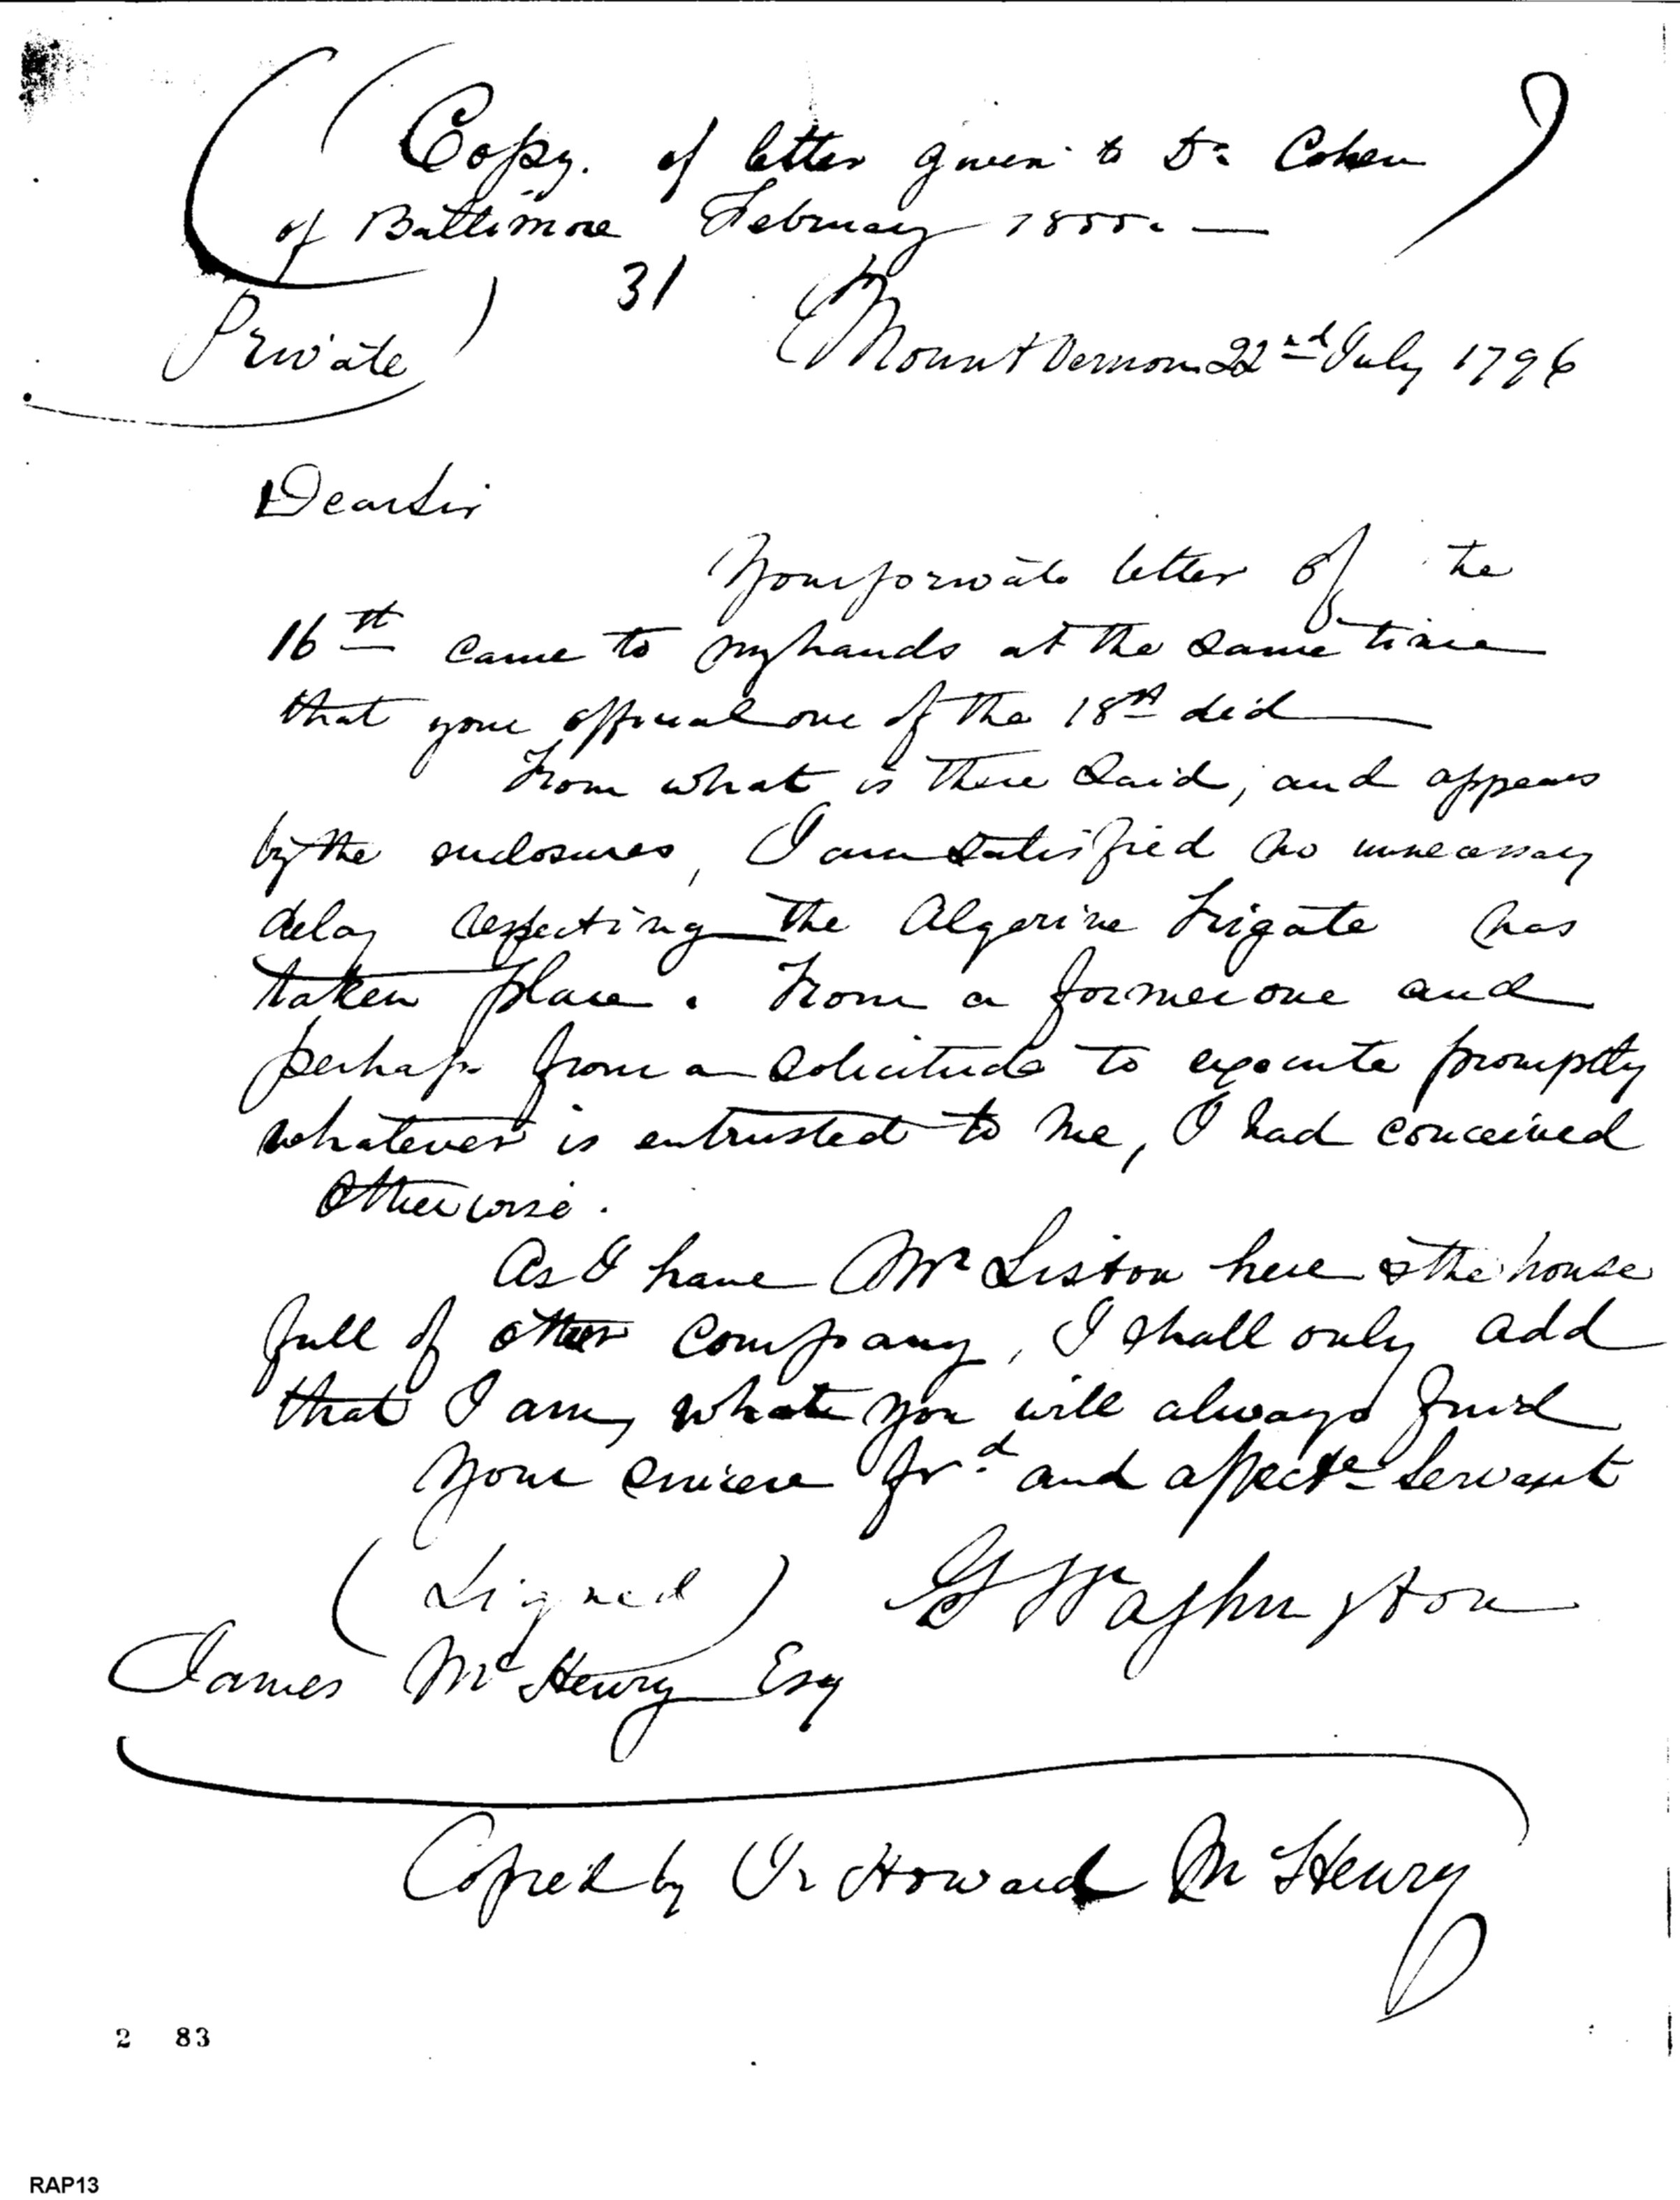 (Copy. of letter given to Dr Cohen
of Baltimore February 1855. —
31
Private) Mount Vernon 22nd July 1796
Dear Sir
Your private letter of the
16th came to my hands at the same time
that your official one of the 18th did
From what is there said, and appears
by the enclosures, I am satisfied no unnecessary
delay respecting the Algerine Frigate has
taken place. From a former one and
perhaps from a solicitude to execute promptly
whatever is entrusted to me, I had conceived
otherwise.
As I have Mr Liston here & the house
full of other company, I shall only add
that I am, what you will always find
Your sincere frd and affecte Servant
(Signed) G Washington
James McHenry Esq
Copied by Jr Howard McHenry
2 83
RAP13